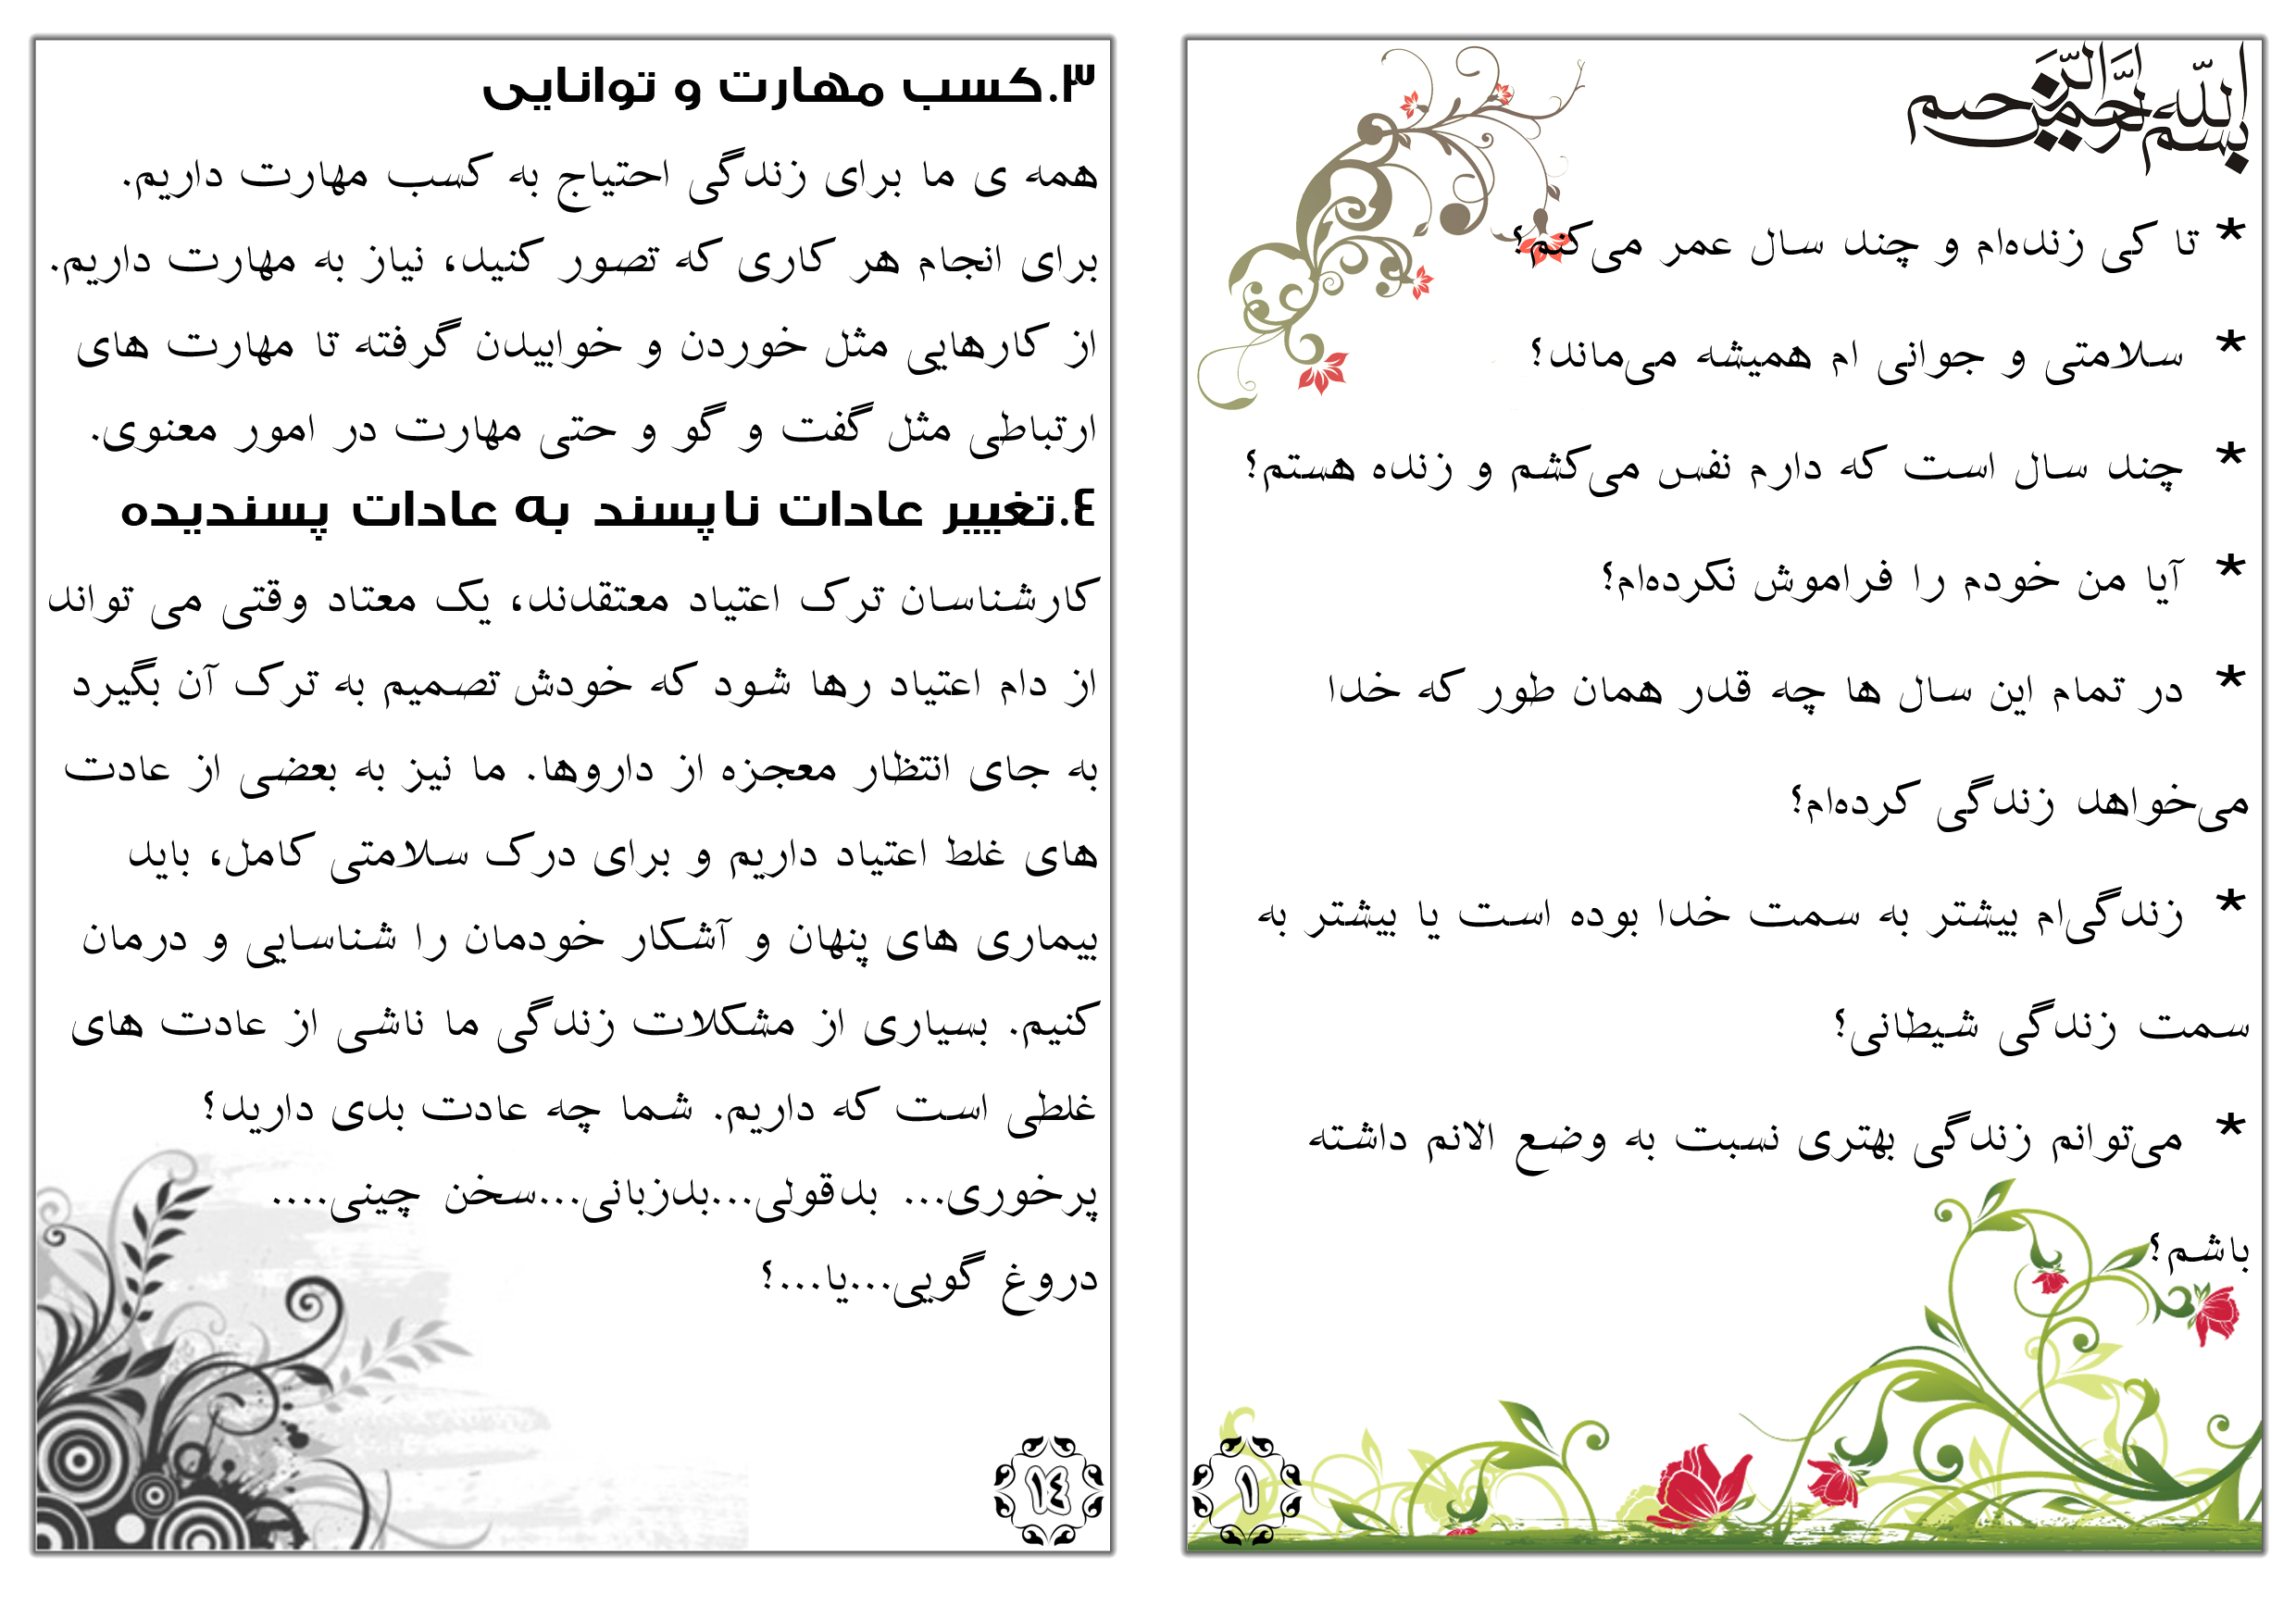 بسم الله الرحمن الرحیم
* تا کی زنده‌ام و چند سال عمر می‌کنم؟
* سلامتی و جوانی ام همیشه می‌ماند؟
* چند سال است که دارم نفس می‌کشم و زنده هستم؟
* آیا من خودم را فراموش نکرده‌ام؟
* در تمام این سال ها چه قدر همان طور که خدا
می‌خواهد زندگی کرده‌ام؟
* زندگی‌ام بیشتر به سمت خدا بوده است یا بیشتر به
سمت زندگی شیطانی؟
* می‌توانم زندگی بهتری نسبت به وضع الانم داشته
باشم؟
۱
۳.کسب مهارت و توانایی
همه ی ما برای زندگی احتیاج به کسب مهارت داریم.
برای انجام هر کاری که تصور کنید، نیاز به مهارت داریم.
از کارهایی مثل خوردن و خوابیدن گرفته تا مهارت های
ارتباطی مثل گفت و گو و حتی مهارت در امور معنوی.
٤.تغییر عادات ناپسند به عادات پسندیده
کارشناسان ترک اعتیاد معتقدند، یک معتاد وقتی می تواند
از دام اعتیاد رها شود که خودش تصمیم به ترک آن بگیرد
به جای انتظار معجزه از داروها. ما نیز به بعضی از عادت
های غلط اعتیاد داریم و برای درک سلامتی کامل، باید
بیماری های پنهان و آشکار خودمان را شناسایی و درمان
کنیم. بسیاری از مشکلات زندگی ما ناشی از عادت های
غلطی است که داریم. شما چه عادت بدی دارید؟
پرخوری... بدقولی...بدزبانی...سخن چینی....
دروغ گویی...یا...؟
۱٤